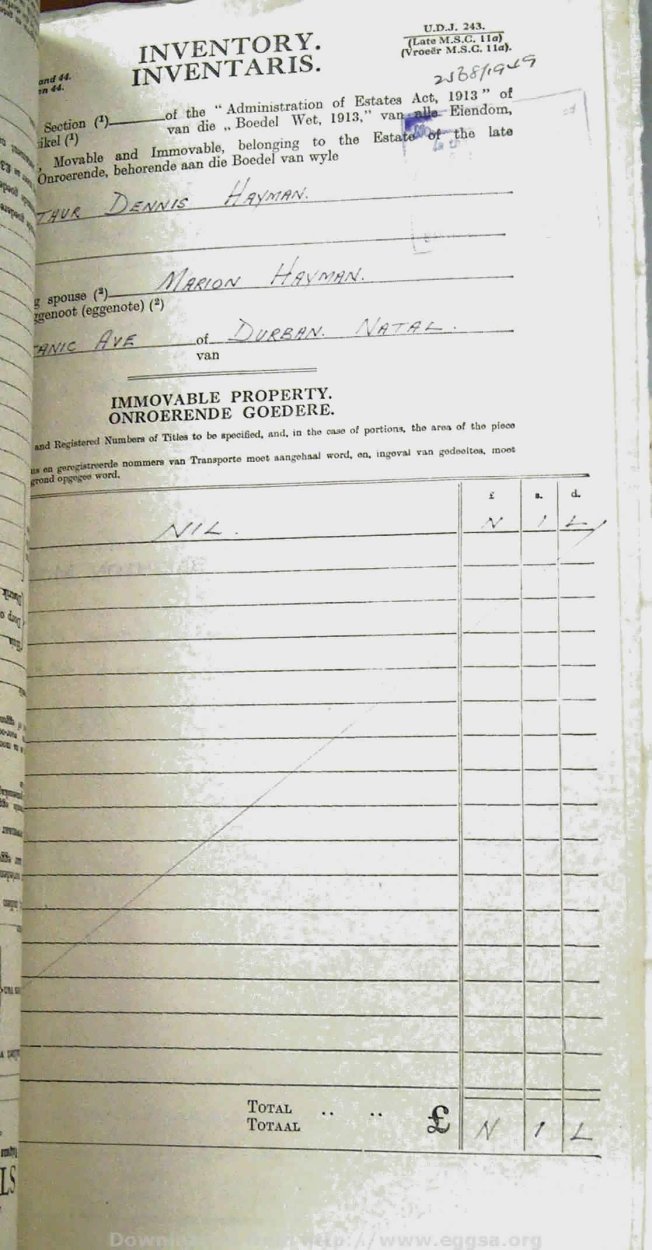 U.D.J. 243.
(Late M.S.C. 11a)
(Vroeër M.S.C. 11a).
INVENTORY.
INVENTARIS.
and 44.
en 44.
Section (¹) of the “Administration of Estates Act, 1913” of
ikel (¹) van die „Boedel Wet, 1913,” van alle Eiendom,
Movable and Immovable, belonging to the Estate of the late
Onroerende, behorende aan die Boedel van wyle
THUR DENNIS HAYMAN.
g spouse (²) MARION HAYMAN.
ggenoot (eggenote) (²)
TANIC AVE of DURBAN. NATAL.
van
IMMOVABLE PROPERTY.
ONROERENDE GOEDERE.
and Registered Numbers of Titles to be specified, and, in the case of portions, the area of the piece
ns en geregistreerde nommers van Transporte moet aangehaal word, en, ingeval van gedeeltes, moet
grond opgegee word.
£ s. d.
NIL. N I L
TOTAL .. .. £ N I L
TOTAAL
http://www.eggsa.org